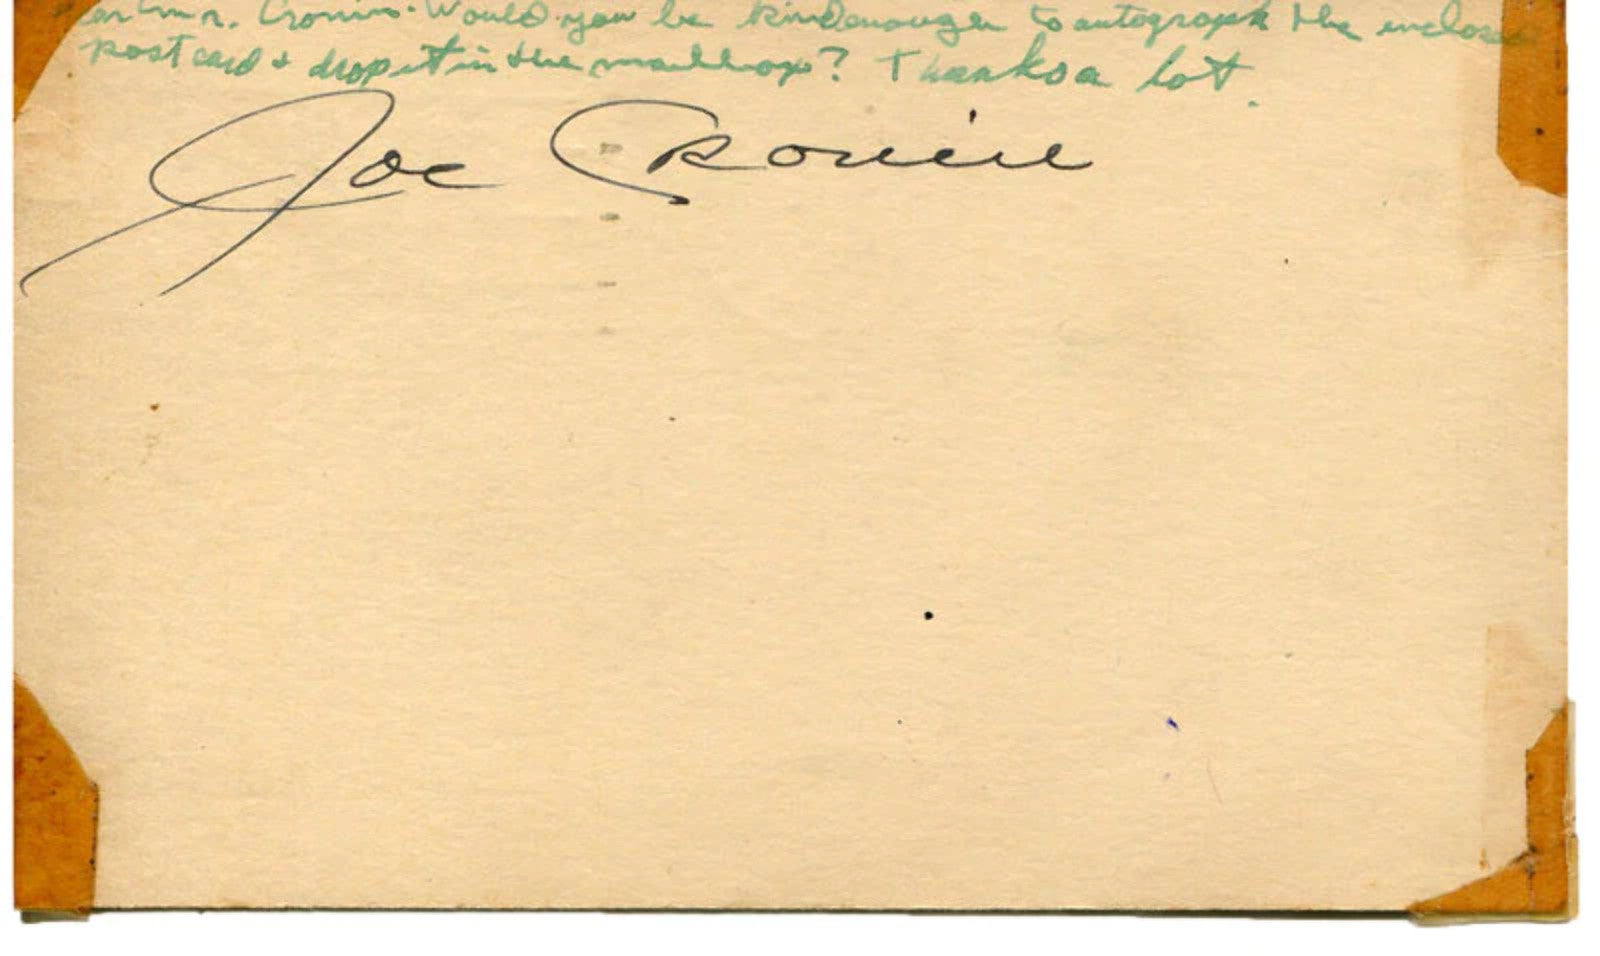 Dear Mr. Cronin. Would you be kind enough to autograph the enclosed
postcard & drop it in the mailbox? Thanks a lot.
Joe Cronin